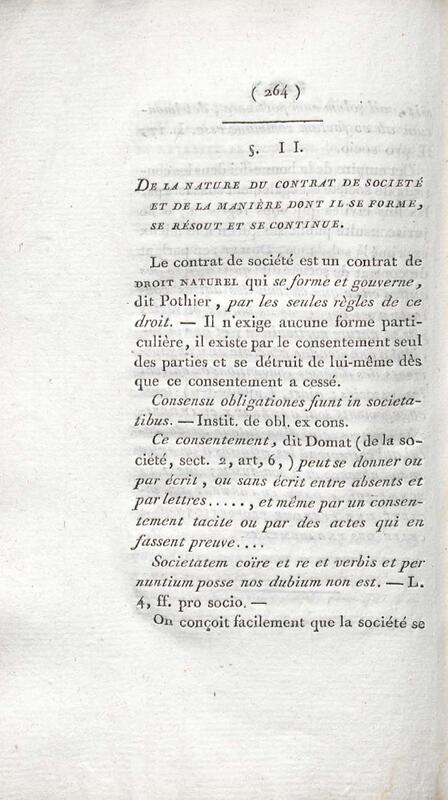 ( 264 )
§. II.
DE LA NATURE DU CONTRAT DE SOCIETÉ
ET DE LA MANIÈRE DONT IL SE FORME,
SE RÉSOUT ET SE CONTINUE.
Le contrat de société est un contrat de
DROIT NATUREL qui se forme et gouverne,
dit Pothier, par les seules règles de ce
droit. — Il n'exige aucune forme parti-
culière, il existe par le consentement seul
des parties et se détruit de lui-même dès
que ce consentement a cessé.
Consensu obligationes fiunt in societa-
tibus. — Instit. de obl. ex cons.
Ce consentement, dit Domat (de la so-
ciété, sect. 2, art, 6, ) peut se donner ou
par écrit, ou sans écrit entre absents et
par lettres....., et même par un consen-
tement tacite ou par des actes qui en
fassent preuve....
Societatem coïre et re et verbis et per
nuntium posse nos dubium non est. — L.
4, ff. pro socio. —
On conçoit facilement que la société se